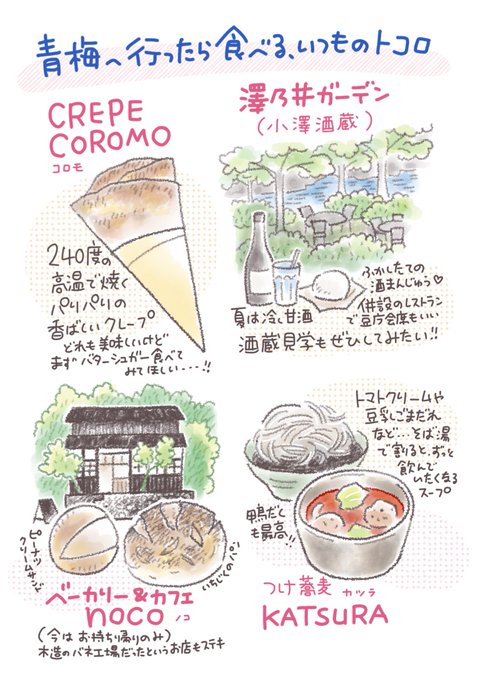 青梅へ行ったら食べる、いつものトコロ
CREPE
COROMO
コロモ
240度の
高温で焼く
パリパリの
香ばしいクレープ
どれも美味しいけど
まず バターシュガー食べて
みてほしい・・・!!
澤乃井ガーデン
(小澤酒蔵)
ふかしたての
酒まんじゅう♡
夏は冷し甘酒
併設のレストラン
で豆庁会席もいい
酒蔵見学もぜひしてみたい!!
ピーナッツ
クリームサンド
いちじくのパン
ベーカリー&カフェ
noco ノコ
(今はお持ち帰りのみ)
木造のバネ工場だったというお店もステキ
トマトクリームや
豆乳ごまだれ
など…そば湯
で割ると、ずっと
飲んで
いたくなる
スープ
鴨だし
も最高!!
つけ蕎麦 カツラ
KATSURA